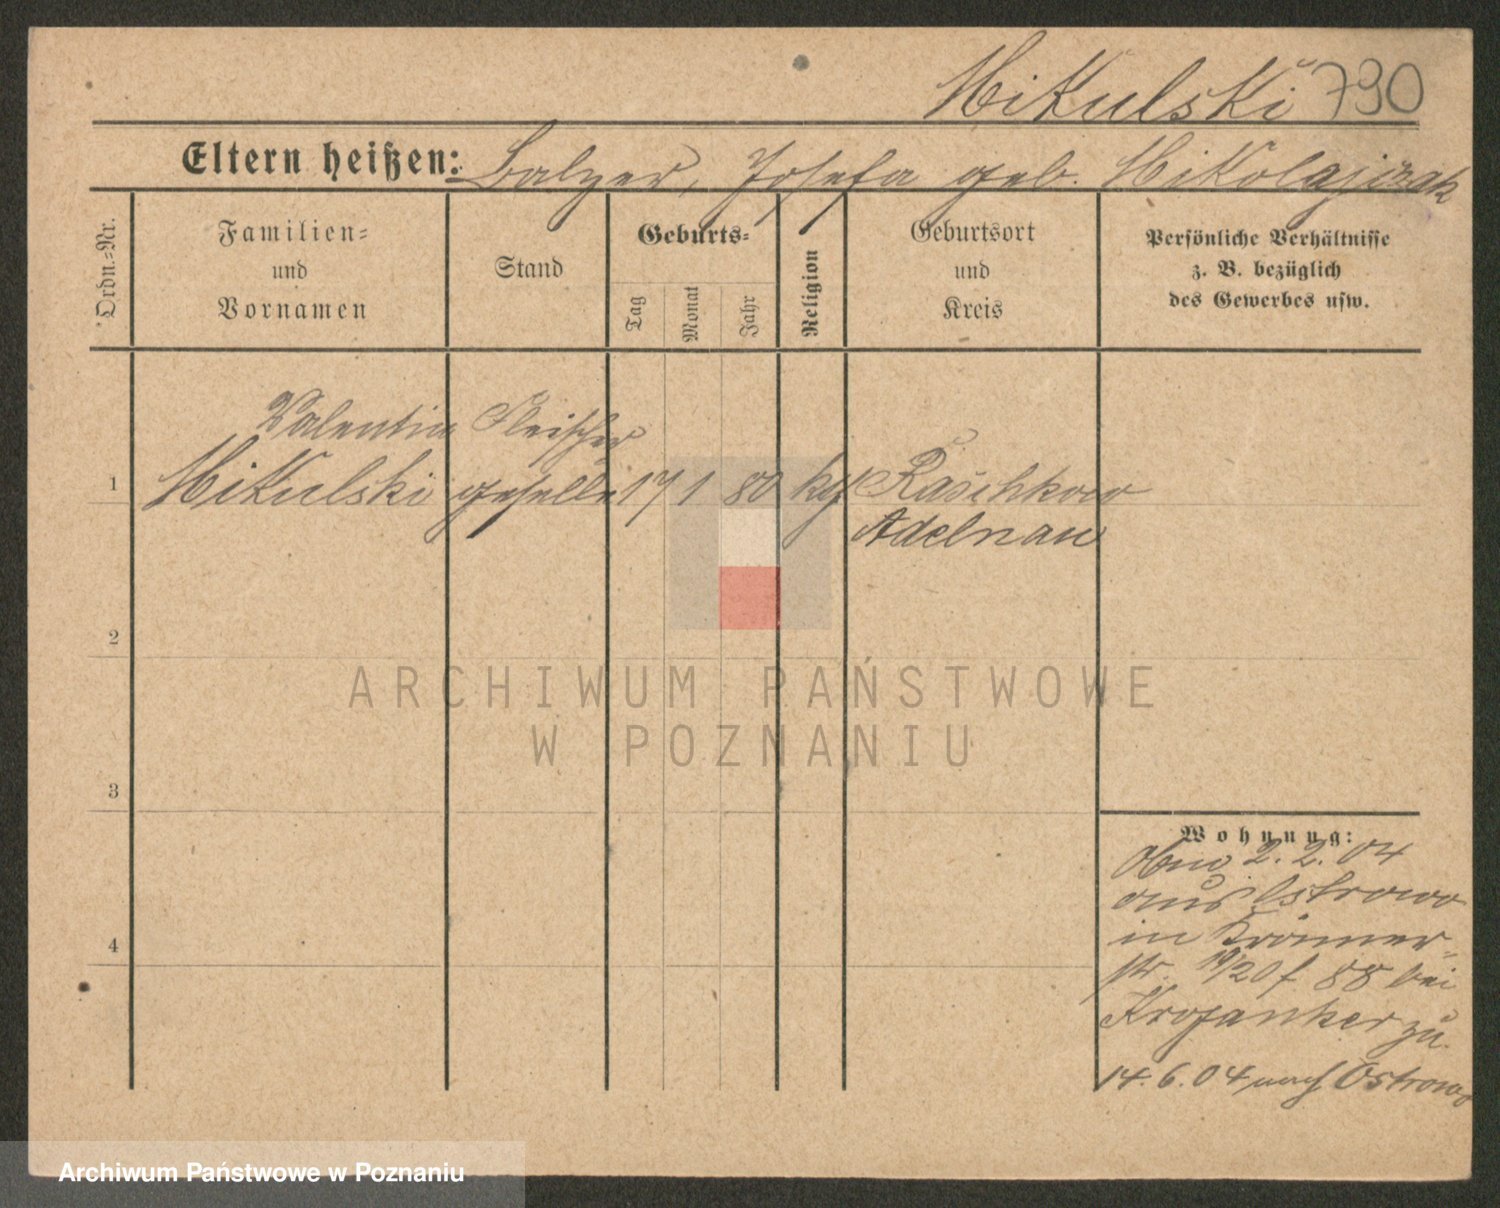 Mikulski 790
Eltern heißen: Balzer, Josefa geb. Mikolajczak
Ordn.-Nr.
Familien-
und
Vornamen
Stand
Geburts-
Tag
Monat
Jahr
Religion
Geburtsort
und
Kreis
Persönliche Verhältnisse
z. B. bezüglich
des Gewerbes usw.
Valentin Fleischer
1 Mikulski geselle 17 1 80 kath Raschkow
Adelnau
2
3
4
ARCHIWUM PAŃSTWOWE
W POZNANIU
Wohnung:
2. 2. 04
aus Ostrowo
in Krämer-
str. 19/20 f 88 bei
Krojanker zu
14. 6. 04 nach Ostrowo
Archiwum Państwowe w Poznaniu